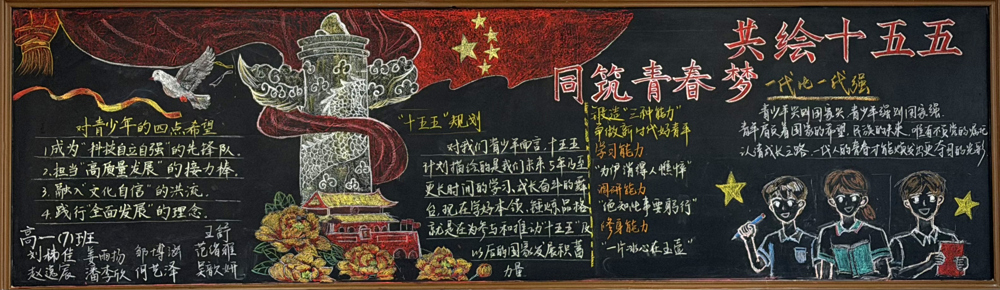 共绘十五五
同筑青春梦
一代比一代强
对青少年的四点希望
1.成为"科技自立自强"的先锋队.
2.担当"高质量发展"的接力棒.
3.融入"文化自信"的洪流.
4.践行"全面发展"的理念.
高一(7)班
王舒
"十五五"规划
对我们青少年而言,十五五
计划描绘的是我们未来5年乃至
更长时间的学习、成长奋斗的舞
台.现在学好本领、锤炼品格
就是在为参与和推动"十五五"及
以后的国家发展积蓄
力量
锻造"三种能力"
争做新时代好青年
学习能力
"为伊消得人憔悴"
调研能力
"绝知此事要躬行"
修身能力
"一片冰心在玉壶"
青少年兴则国家兴,青少年强则国家强.
青年者 国家的希望,民族的未来.唯有
认清成长之路,一代人的青春才能焕发出更夺目的光彩